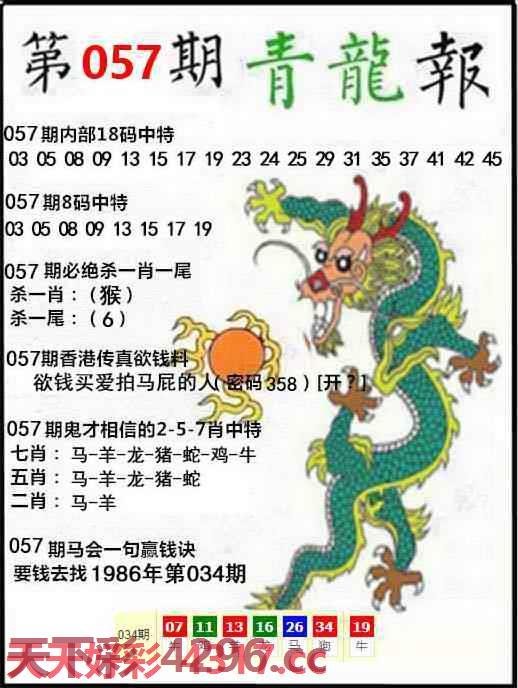 第057期青龍報
057期内部18码中特
03 05 08 09 13 15 17 19 23 24 25 29 31 35 37 41 42 45
057期8码中特
03 05 08 09 13 15 17 19
057期必绝杀一肖一尾
杀一肖:(猴)
杀一尾:(6)
057期香港传真欲钱料
欲钱买爱拍马屁的人(密码358)[开?]
057期鬼才相信的2-5-7肖中特
七肖:马-羊-龙-猪-蛇-鸡-牛
五肖:马-羊-龙-猪-蛇
二肖:马-羊
057期马会一句赢钱诀
要钱去找1986年第034期
034期 07 11 13 16 26 34 19
马 狗 牛
天天好彩.cc